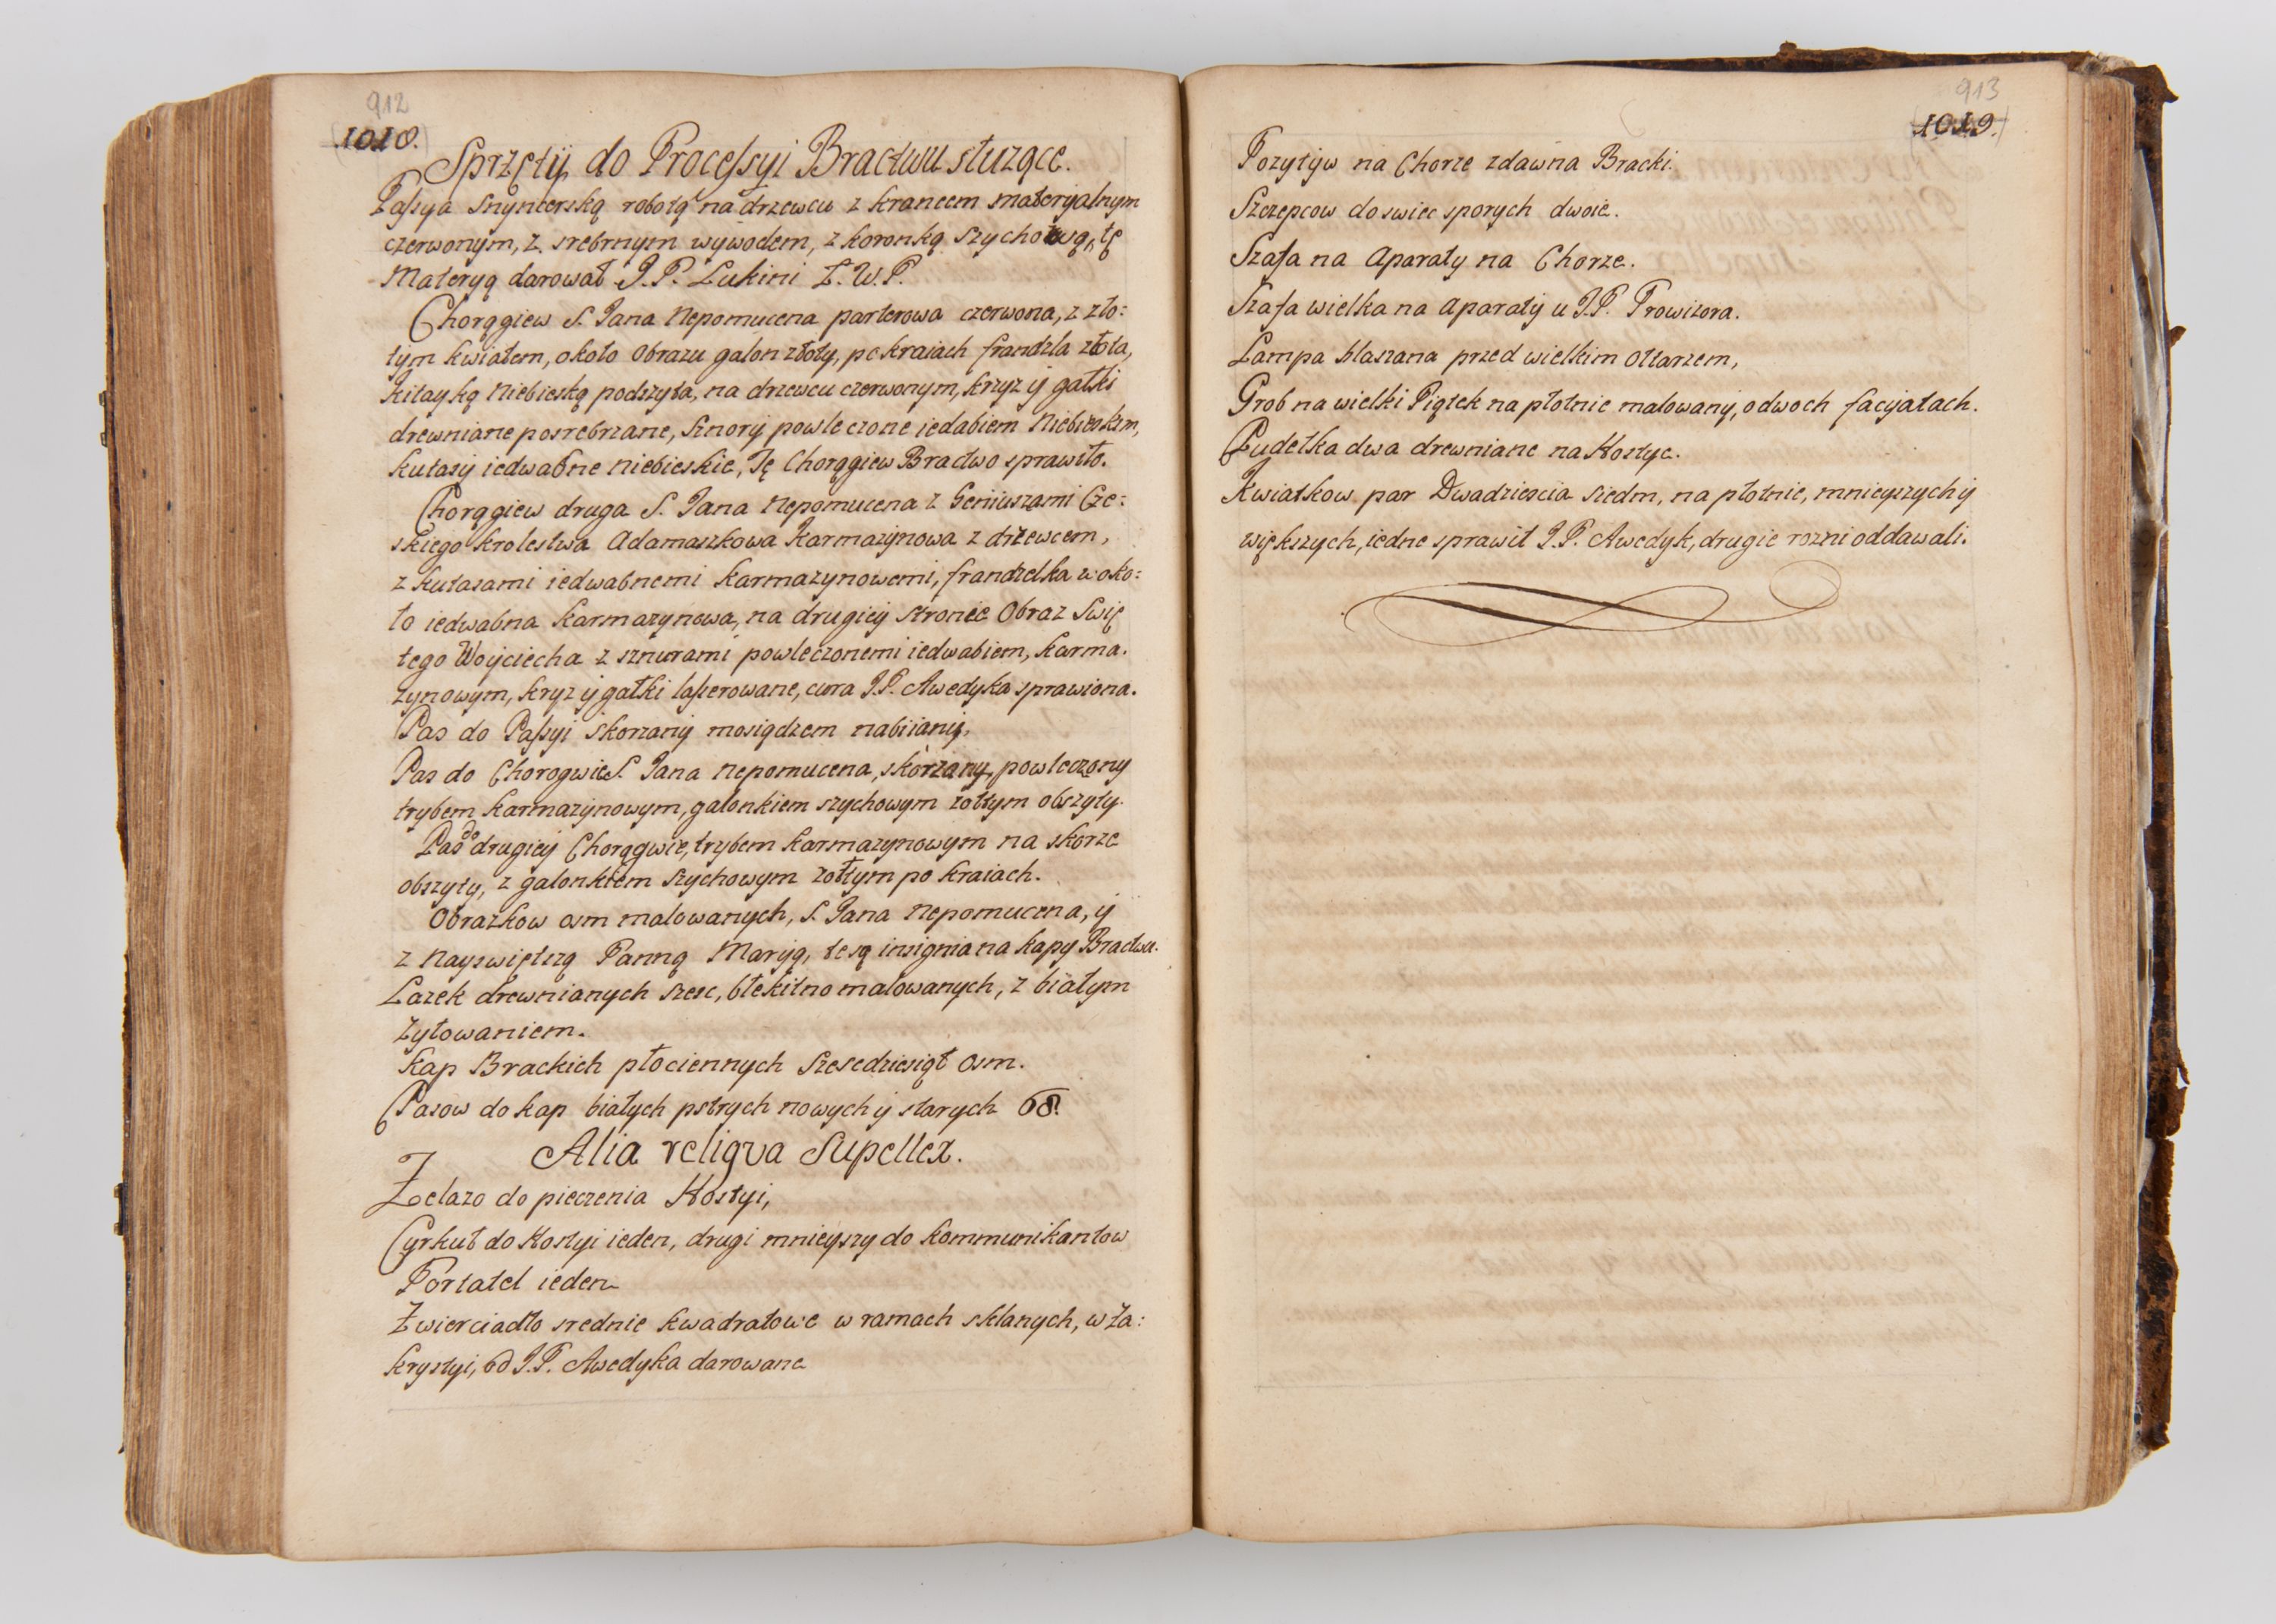 912
1018.
Sprzętÿ do Processyi Bractwu służące.
Passya Snyncerską robotą na drzewcu z krancem materyalnym
czerwonym, z srebrnym wywodem, z koronką szychową, tę
Materyą darował J.P. Lukini Ł.W.P.
Chorągiew S. Jana Nepomucena parterowa czerwona, z zło:
tym kwiatem, około Obrazu galon złoty, po kraiach frandzla złota,
kitayką Niebieską podszyta, na drzewcu czerwonym, krzyz ÿ gałki
drewniane posrebrzane, Sznorÿ powleczone iedabiem Niebieskim,
kutasÿ iedwabne niebieskie, Tę Chorągiew Bractwo sprawiło.
Chorągiew druga S. Jana Nepomucena z Geniuszami Cze:
skiego krolestwa Adamaszkowa Karmazÿnowa z drzewcem,
z kutasami iedwabnemi karmazynowemi, frandzelka woko:
ło iedwabna karmazynowa, na drugieÿ stronie Obraz Swię
tego Woyciecha z sznurami powleczonemi iedwabiem, karma.
zynowym, kryz ÿ gałki laserowane, cura J.P. Awedyka sprawiona.
Pas do Passyi skorzanÿ mosiądzem nabiianÿ,
Pas do Chorogwie S. Jana Nepomucena, skorzany, powleczony
trybem karmazÿnowym, galonkiem szychowym zołtym obszyty.
Pas do drugieÿ Chorągwie, trybem karmazynowym na skorze
obszyty, z galonkiem szychowym zołtym po kraiach.
Obrazkow osm malowanych, S. Jana Nepomucena, ÿ
z Nayswiętszą Panną Maryą, te są insignia na kapy Bractwu.
Lazek drewnianych szesc, błekitno malowanych, z białym
zytowaniem.
Kap Brackich płociennych szescdziesiąt osm.
Pasow do kap białych pstrych nowych ÿ starych 68.
Alia religva Supellex.
Zelazo do pieczenia Hostyi,
Cyrkuł do Hostyi ieden, drugi mnieyszy do kommunikantow
Portatel ieden
Zwierciadło srednie kwadratowe w ramach sklanych, w Za:
krystyi, od J.P. Awedyka darowane
913
1019.
Pozytÿw na Chorze zdawna Bracki.
Szczepcow do swiec sporych dwoie.
Szafa na Aparaty na Chorze.
Szafa wielka na Aparatÿ u J.P. Prowizora.
Lampa blaszana przed wielkim Ołtarzem,
Grob na wielki Piątek na płotnie malowanÿ, o dwoch facÿatach.
Pudełka dwa drewniane na Hostye.
Kwiatkow par Dwadziescia siedm, na płotnie, mnieyszych ÿ
większych, iedne sprawił J.P. Awedyk, drugie rozni oddawali.